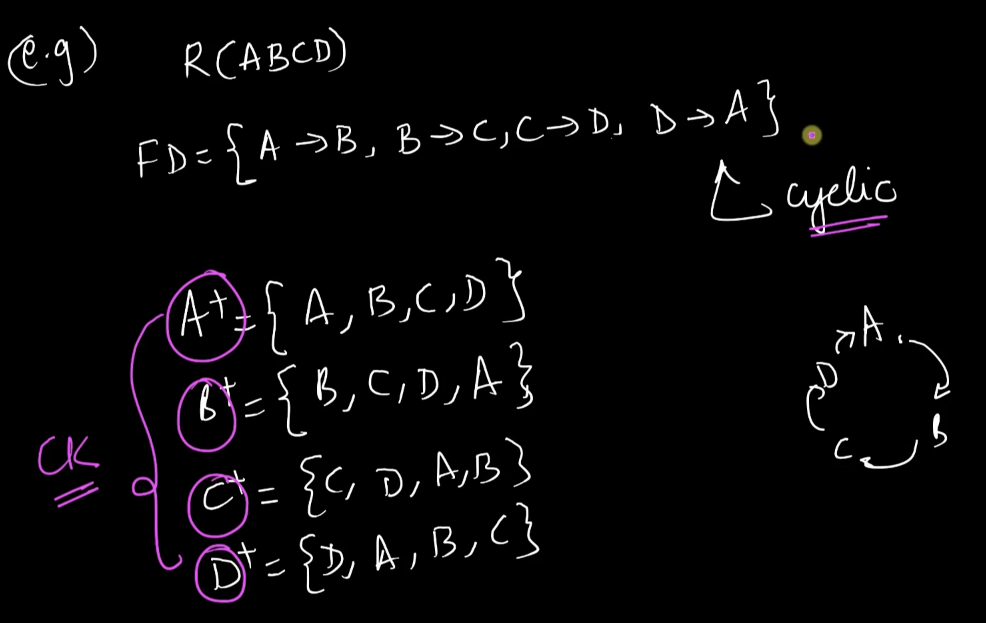 (e.g) R(ABCD)
FD = { A → B, B → C, C → D, D → A }
cyclic
A+ = { A, B, C, D }
B+ = { B, C, D, A }
C+ = { C, D, A, B }
D+ = { D, A, B, C }
CK
A
D
B
C